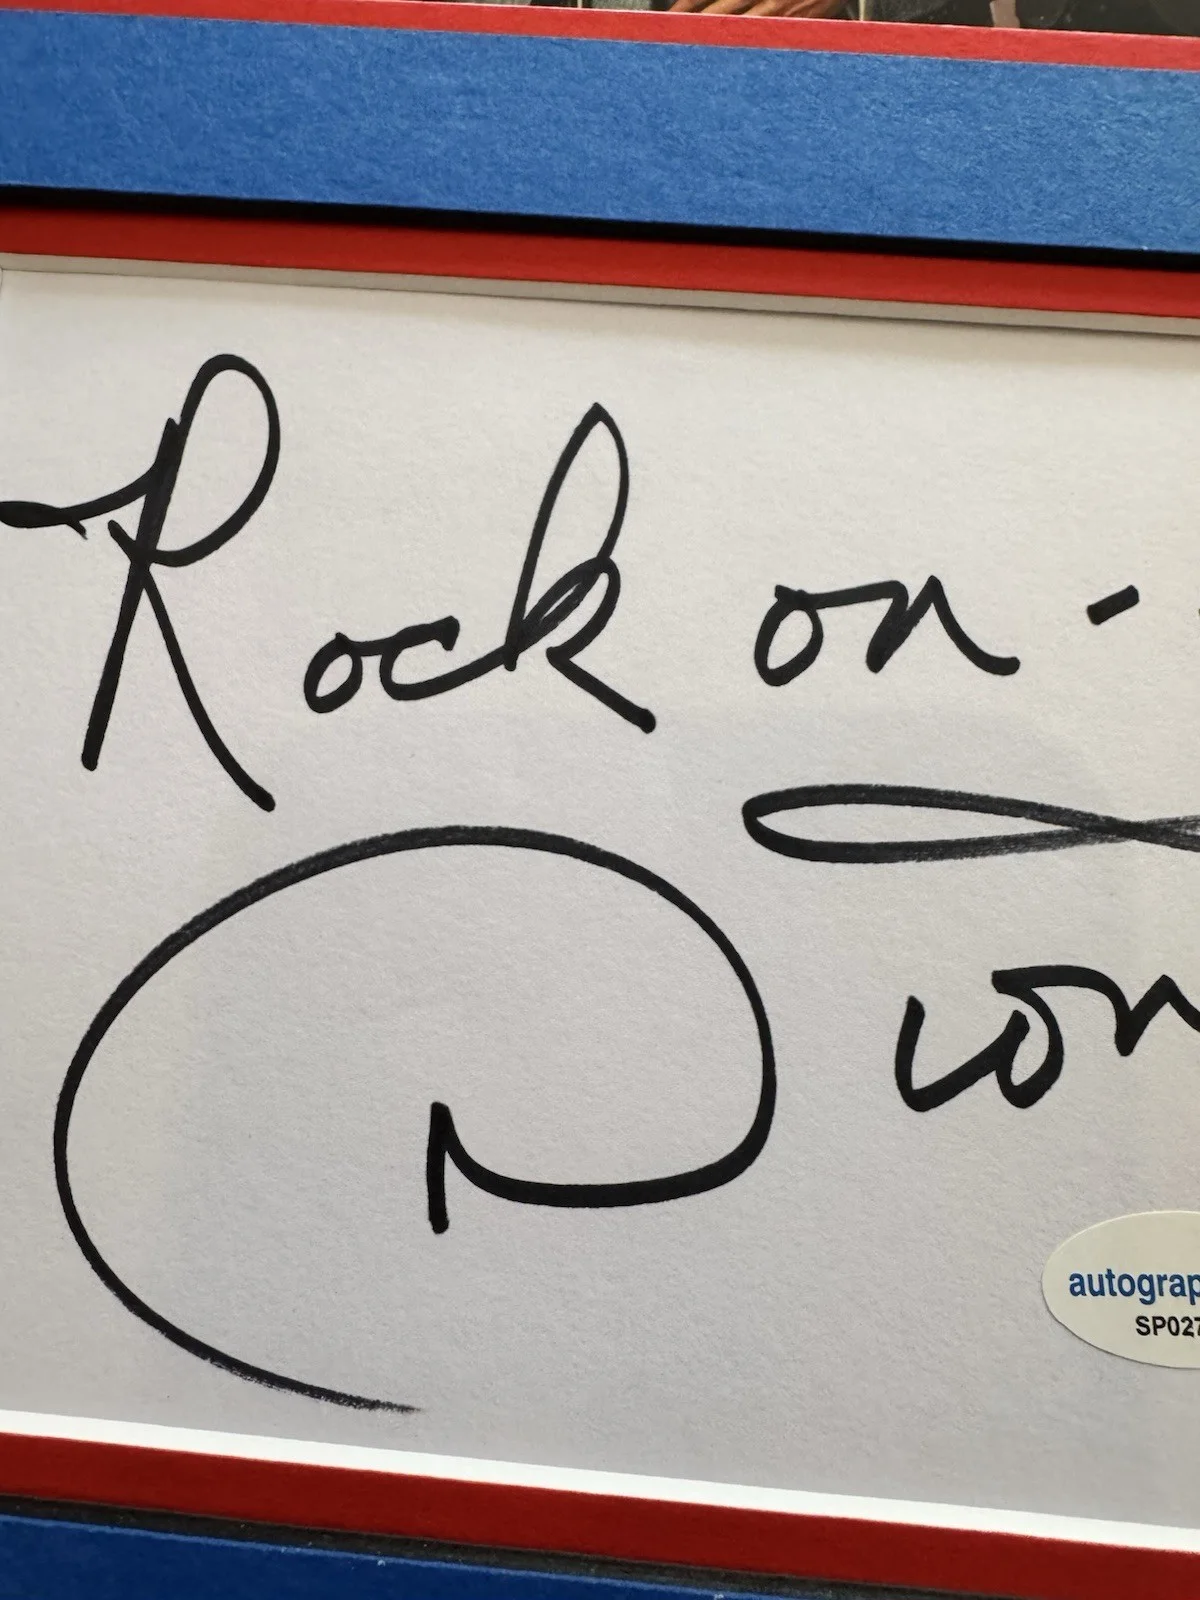 Rock on -
autograp
SP027